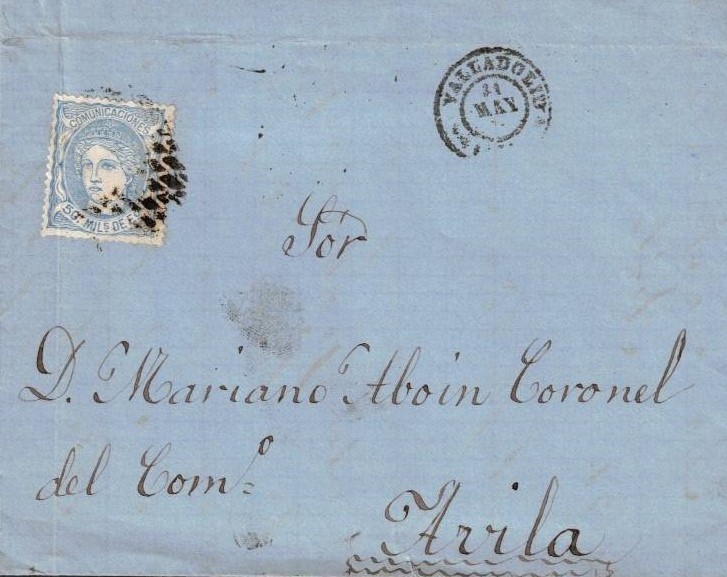 VALLADOLID
MAY
COMUNICACIONES
50 MILS DE E
Sor
D. Mariano Aboin Coronel
del Comº
Avila